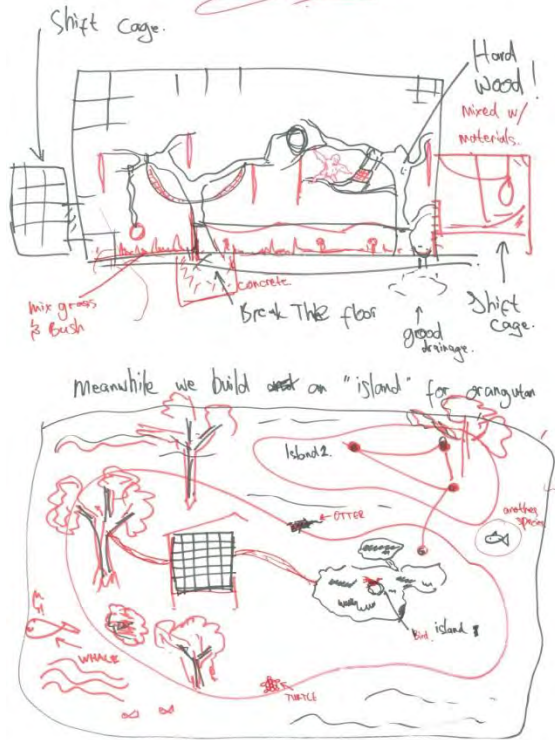 Shift Cage.
Hard
Wood!
mixed w/
materials.
mix grass
& Bush
concrete
Break The floor
good
drainage.
Shift
cage.
Meanwhile we build an "island" for orangutan
Island 2.
OTTER
another
species
Bird
island 1
WHALE
TURTLE